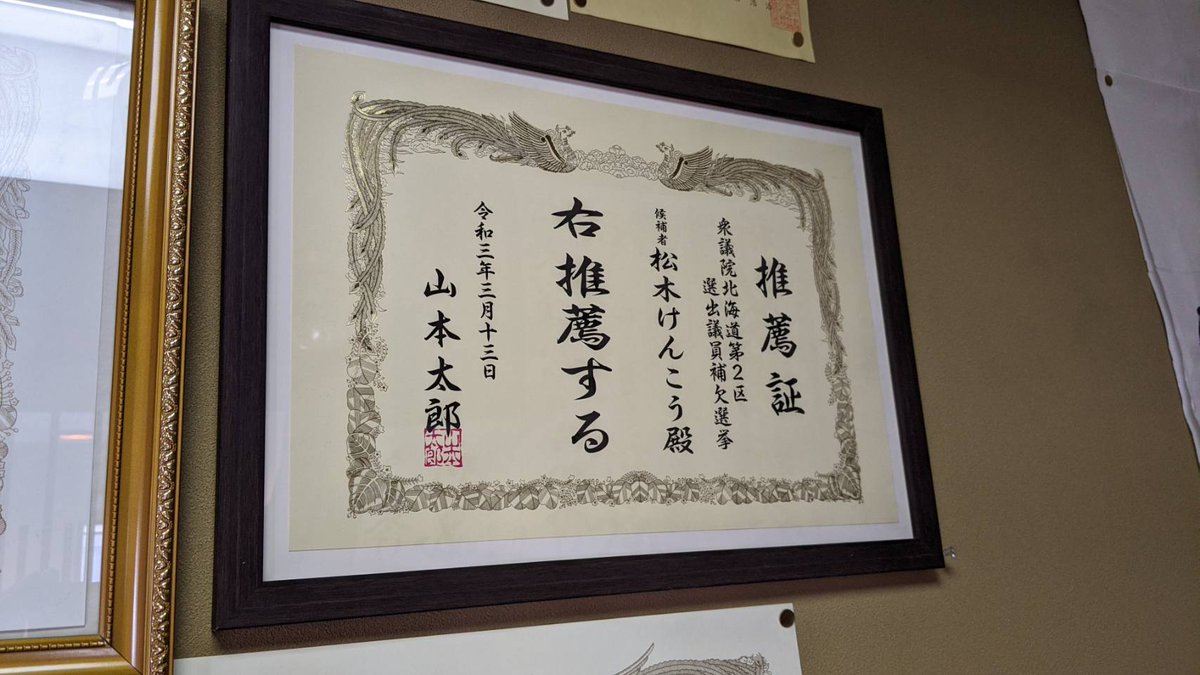 推薦証
衆議院北海道第2区
選出議員補欠選挙
候補者 松木けんこう殿
右推薦する
令和三年三月十三日
山本太郎
山本
太郎